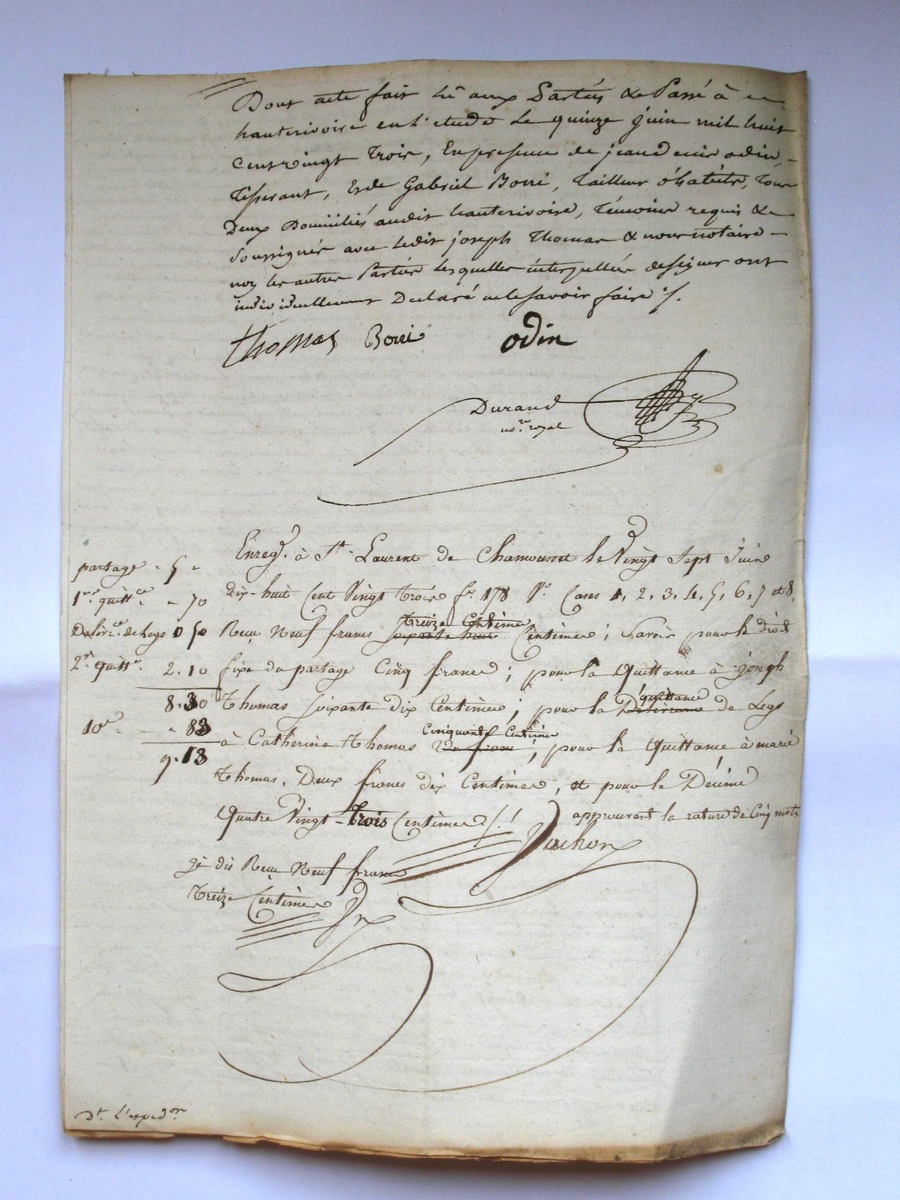 Dont acte fait lû aux Parties & Passé à
hauterivoire en l'etude Le quinze juin mil huit
Cent vingt Trois, En presence de jean denis odin,
Tisserant, Et de Gabriel Borri, Tailleur d'habits, Tous
Deux Domiciliés audit hauterivoire, Témoins requis &
Soussignés avec Ledit joseph Thomas & nous notaire
non les autres Parties Lesquelles interpellées de signer ont
individuellement Declaré ne le savoir faire ./.
thomas Borri odin
Durand
no.re royal
Enreg. à St. Laurent de Chamousset le Vingt Sept Juin
dix-huit Cent Vingt trois fo. 178 Vo. Cases 1, 2, 3, 4, 5, 6, 7 et 8,
treize Centimes
Reçu Neuf francs soixante huit Centimes ; Savoir pour le droit
fixe du partage Cinq francs ; pour la Quittance à joseph
quittance
Thomas soixante dix Centimes ; pour la Délivrance de Legs
Cinquante Centimes
à Catherine Thomas un franc ; pour la Quittance à marie
Thomas, Deux francs dix Centimes, et pour le Décime
Quatre Vingt-trois Centimes ./.
approuvant la rature de Cinq mots
je dis Reçu Neuf francs
treize Centimes
partage - 5 -
1re. quittce. - 70
Délivrce. de Legs 0 50
2e. quitte. 2.10
8.30
10e - - 83
9.13
Dt. l'expedon